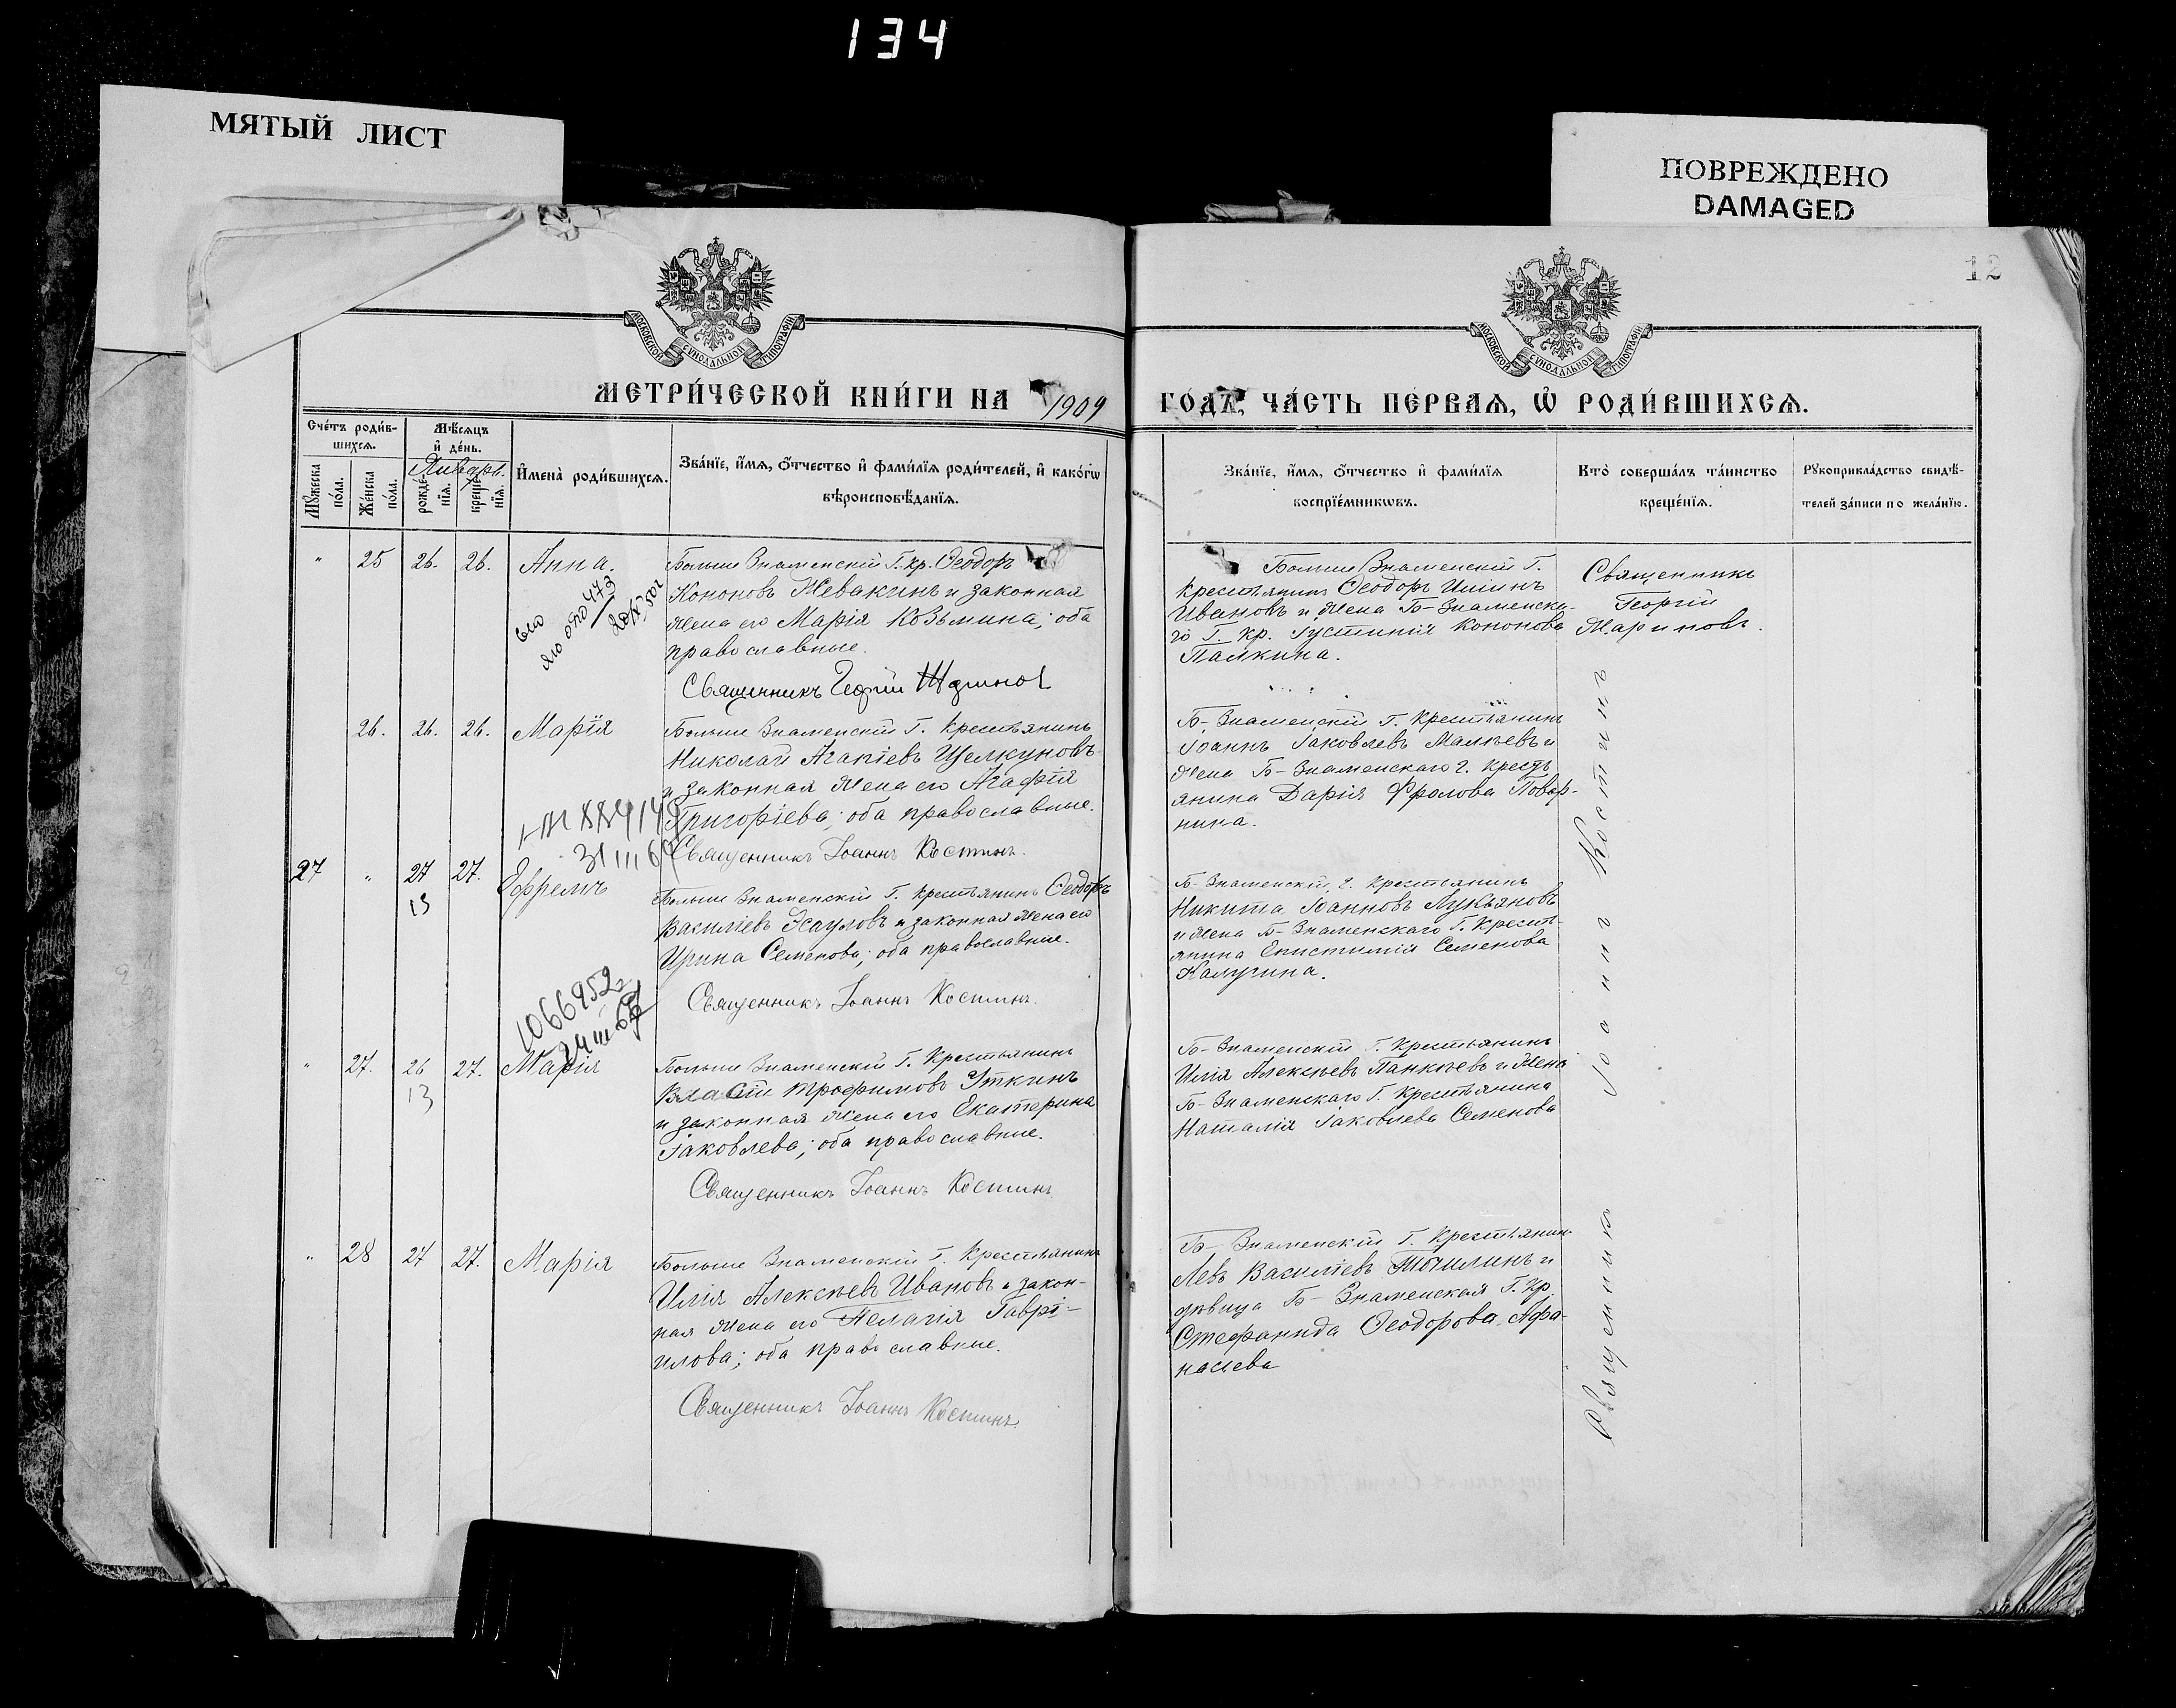 134
МЯТЫЙ ЛИСТ
ПОВРЕЖДЕНО
DAMAGED
12
МОСКОВСКОЙ СѴНОДАЛЬНОЙ ТИПОГРАФІИ
МОСКОВСКОЙ СѴНОДАЛЬНОЙ ТИПОГРАФІИ
МЕТРИ́ЧЕСКОЙ КНИ́ГИ НА 1909 ГОДЪ, ЧА́СТЬ ПЕ́РВАѦ, Ѡ҆ РОДИ́ВШИХСѦ.
Сче́тъ роди́в-
шихсѧ.
Мѹжеска по́ла.
Же́нска по́ла.
Мѣ́сѧцъ
и҆ де́нь.
Январь.
рожде́-
нїѧ.
креще́-
нїѧ.
И҆мена̀ роди́вшихсѧ.
Зва́нїе, и҆́мѧ, ѻ҆́тчество и҆ фами́лїѧ роди́телей, и҆ како́гѡ
вѣроисповѣ́данїѧ.
Зва́нїе, и҆́мѧ, ѻ҆́тчество и҆ фами́лїѧ
воспрїе́мникѡвъ.
Кто̀ соверша́лъ та́инство
креще́нїѧ.
Рꙋкоприкла́дство свидѣ́-
телей за́писи по жела́нїю.
" 25 26. 26. Анна.
Больше Знаменскій Г. кр. Ѳеодоръ
Кононовъ Жевакинъ и законная
жена его Марія Козьмина; оба
православные.
Священникъ Георгій
Больше Знаменскій Г.
крестьянинъ Ѳеодоръ Илиинъ
Ивановъ и жена Б-Знаменска-
го Г. кр. Іустинія Кононова
Палкина.
Священникъ
Георгій
Мариновъ.
26. 26. 26. Марія
Больше Знаменскій Г. крестьянинъ
Николай Агапіевъ Щелкуновъ
и законная жена его Агафія
Григоріева; оба православные.
Священникъ Іоаннъ Костинъ.
Б-Знаменскій Г. крестьянинъ
Іоаннъ Іаковлевъ Малѣевъ и
жена Б-Знаменскаго Г. кресть
янина Дарія Фролова Повар-
нина.
27 " 27 27. Ефремъ
13
Больше Знаменскій Г. крестьянинъ Ѳеодоръ
Василіевъ Эсауловъ и законная жена его
Ирина Семенова; оба православные.
Священникъ Іоаннъ Костинъ.
Б-Знаменскій Г. крестьянинъ
Никита Іоанновъ Лукьяновъ
и жена Б-Знаменскаго Г. кресть-
янина Епистимія Семенова
Калугина.
1066952
" 27. 26 27. Марія
13
Больше Знаменскій Г. крестьянинъ
Власій Трофимовъ Уткинъ
и законная жена его Екатерина
Іаковлева; оба православные.
Священникъ Іоаннъ Костинъ
Б-Знаменскій Г. крестьянинъ
Илія Алексѣевъ Панкѣевъ и жена
Б-Знаменскаго Г. крестьянина
Наталія Іаковлева Семенова
" 28 27 27. Марія
Больше Знаменскій Г. крестьянинъ
Илія Алексѣевъ Ивановъ и закон-
ная жена его Пелагія Гаврі-
илова; оба православные.
Священникъ Іоаннъ Костинъ.
Б-Знаменскій Г. крестьянинъ
Левъ Василіевъ Точилинъ и
дѣвица Б-Знаменская Г. кр.
Стефанида Ѳеодорова Афа-
насіева
Священникъ Іоаннъ Костинъ